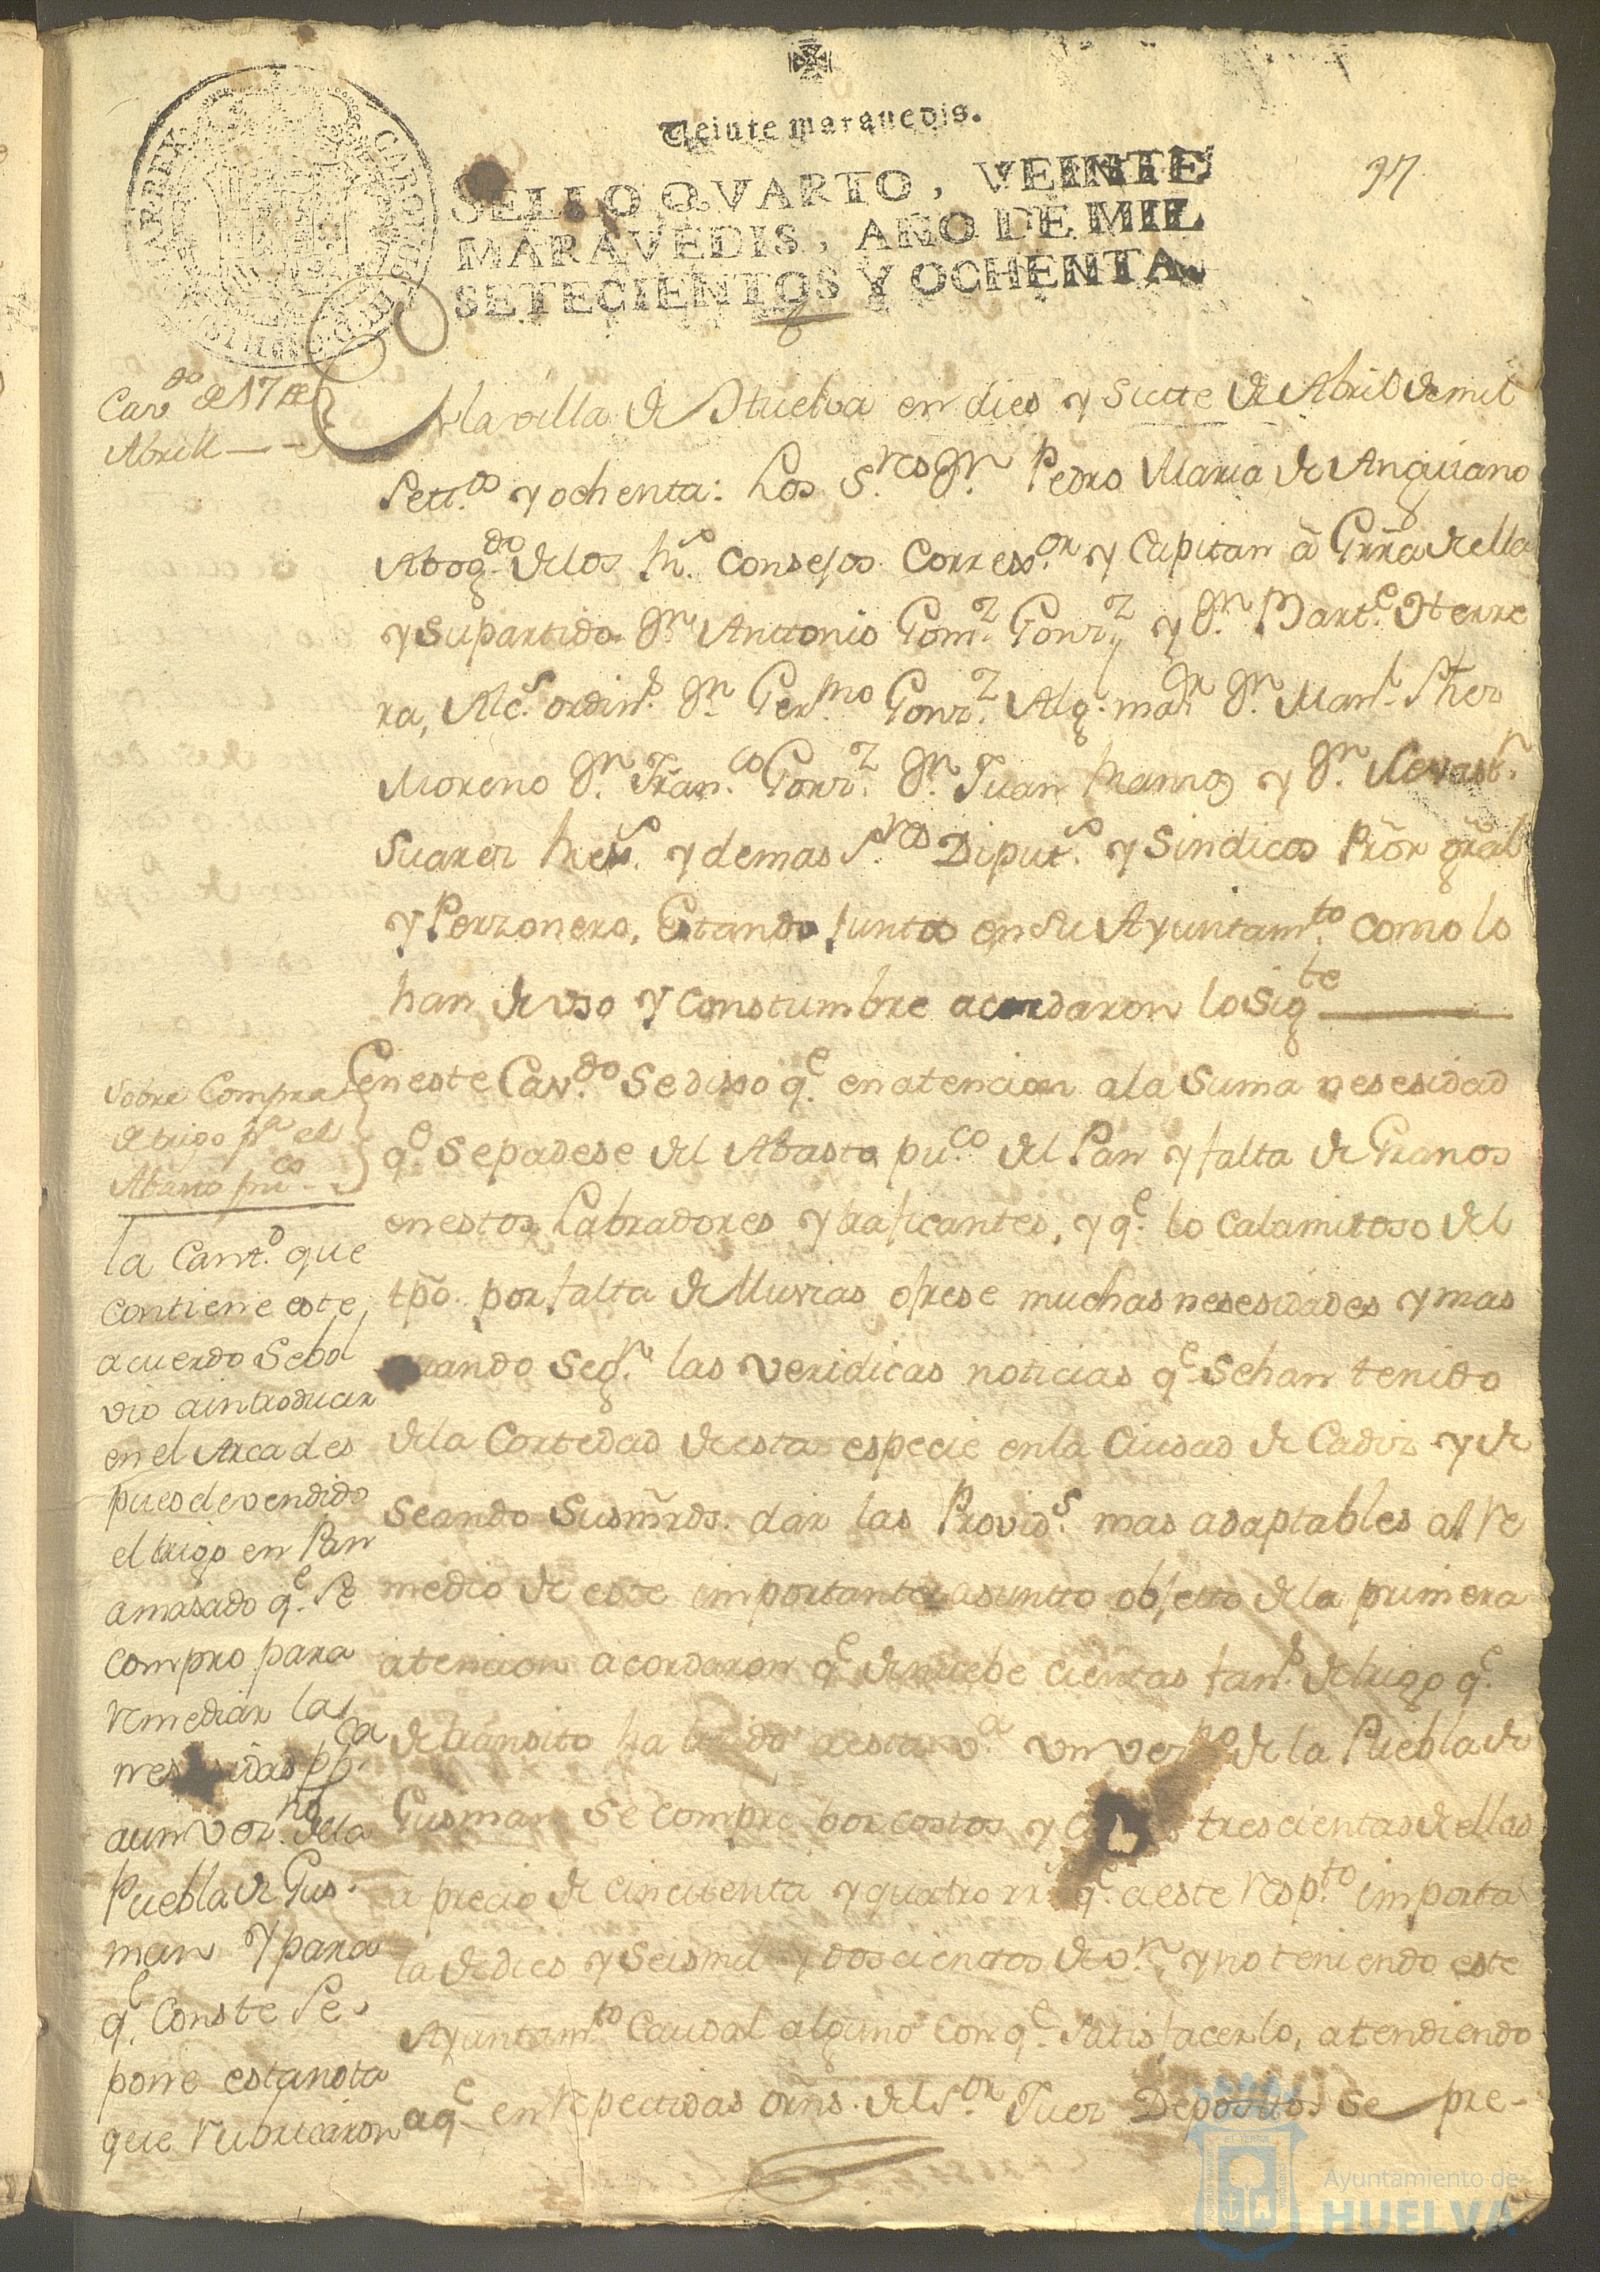 Veinte maravedis.
SELLO QVARTO, VEINTE
MARAVEDIS, AÑO DE MIL
SETECIENTOS Y OCHENTA.
37
CAROLUS III D G HISPANIAR REX
Cavdo de 17 de
Abrill
En la villa de Huelva en dies y Siette de Abril de mil
Settos y ochenta: Los Sres Dn Pedro Maria de Anguiano
Abogdo de los Rs Consejos Corresor y Capitan â Grra de ella
y Supartido Dn Anttonio Gomz Gonzz y Dn Barte Herre
ra, Alces ordins Dn Germno Gonzz Alg. mar Dn Manl
Moreno Dn Franco Gonzz Dn Juan y Dn Sevastn
Suarez y demas Sres Diputs y Sindicos Pror gral
y Perzonero, Estando Juntos en su Ayuntamto como lo
han de uso y Constumbre acordaron lo Sigte
Sobre Compra
de trigo pa el
Abasto puco
En este Cavdo Se disso qe en atencion ala Suma nesesidad
qe Se padese del Abasto puco del Pan y falta de Granos
en estos Labradores y traficantes, y qe lo Calamitoso del
tpo. por falta de Lluvias ofrese muchas nesesidades y mas
quando Segn las veridicas noticias qe Sehan tenido
dela Cortedad de esta especie en la Ciudad de Cadiz y de
Seando Susmrds. dar las Provids mas adaptables al re
medio de este importante asuntto objetto de la primera
atencion acordaron qe de nuebe cientas fans de trigo qe
de transito ha traido a esta va un vezno de la Puebla de
Gusman Se compre por costos y trescientas de ellas
a precio de cincuenta y quatro rrs qe a este respto importa
la de dies y Seis mil y doscientos de vn y no teniendo este
Ayuntamto Caudal alguno con qe Satisfacerlo, atendiendo
aqe en repettidas orns. del Sor Juez Depositos Se pre-
la Cantd que
contiene este
acuerdo Sebol
vio aintroducir
en el Arca des
pues de vendido
el trigo en Pan
amasado qe Se
compro para
remediar las
nesesidas ppca
a un vezno dela
Puebla de Gus
man y para
qe Conste Se
pone esta nota
que rubricaron
Ayuntamiento de
HUELVA